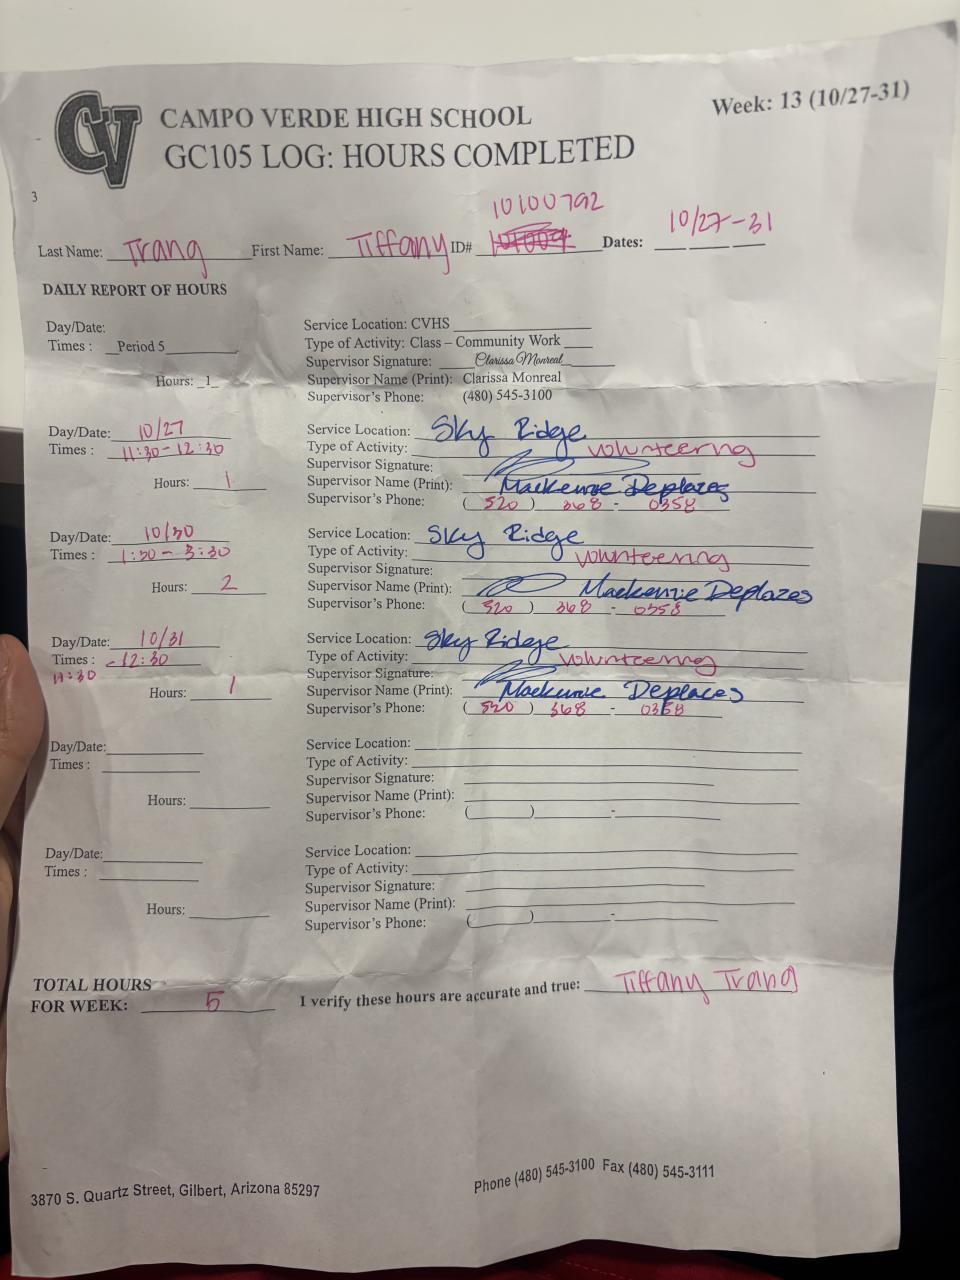 CV
CAMPO VERDE HIGH SCHOOL
GC105 LOG: HOURS COMPLETED
Week: 13 (10/27-31)
3
10100792
Last Name: Trang First Name: Tiffany ID# Dates: 10/27-31
DAILY REPORT OF HOURS
Day/Date:
Times : Period 5
Hours: 1
Service Location: CVHS
Type of Activity: Class – Community Work
Supervisor Signature: Clarissa Monreal
Supervisor Name (Print): Clarissa Monreal
Supervisor's Phone: (480) 545-3100
Day/Date: 10/27
Times : 11:30 - 12:30
Hours: 1
Service Location: Sky Ridge
Type of Activity: volunteering
Supervisor Signature:
Supervisor Name (Print): Mackenzie Deplazes
Supervisor's Phone: (520) 368 - 0358
Day/Date: 10/30
Times : 1:30 - 3:30
Hours: 2
Service Location: Sky Ridge
Type of Activity: volunteering
Supervisor Signature:
Supervisor Name (Print): Mackenzie Deplazes
Supervisor's Phone: (520) 368 - 0358
Day/Date: 10/31
Times : - 12:30
11:30
Hours: 1
Service Location: Sky Ridge
Type of Activity: volunteering
Supervisor Signature:
Supervisor Name (Print): Mackenzie Deplazes
Supervisor's Phone: (520) 368 - 0358
Day/Date:
Times :
Hours:
Service Location:
Type of Activity:
Supervisor Signature:
Supervisor Name (Print):
Supervisor's Phone: ( ) -
Day/Date:
Times :
Hours:
Service Location:
Type of Activity:
Supervisor Signature:
Supervisor Name (Print):
Supervisor's Phone: ( ) -
TOTAL HOURS
FOR WEEK: 5
I verify these hours are accurate and true: Tiffany Trang
3870 S. Quartz Street, Gilbert, Arizona 85297
Phone (480) 545-3100 Fax (480) 545-3111